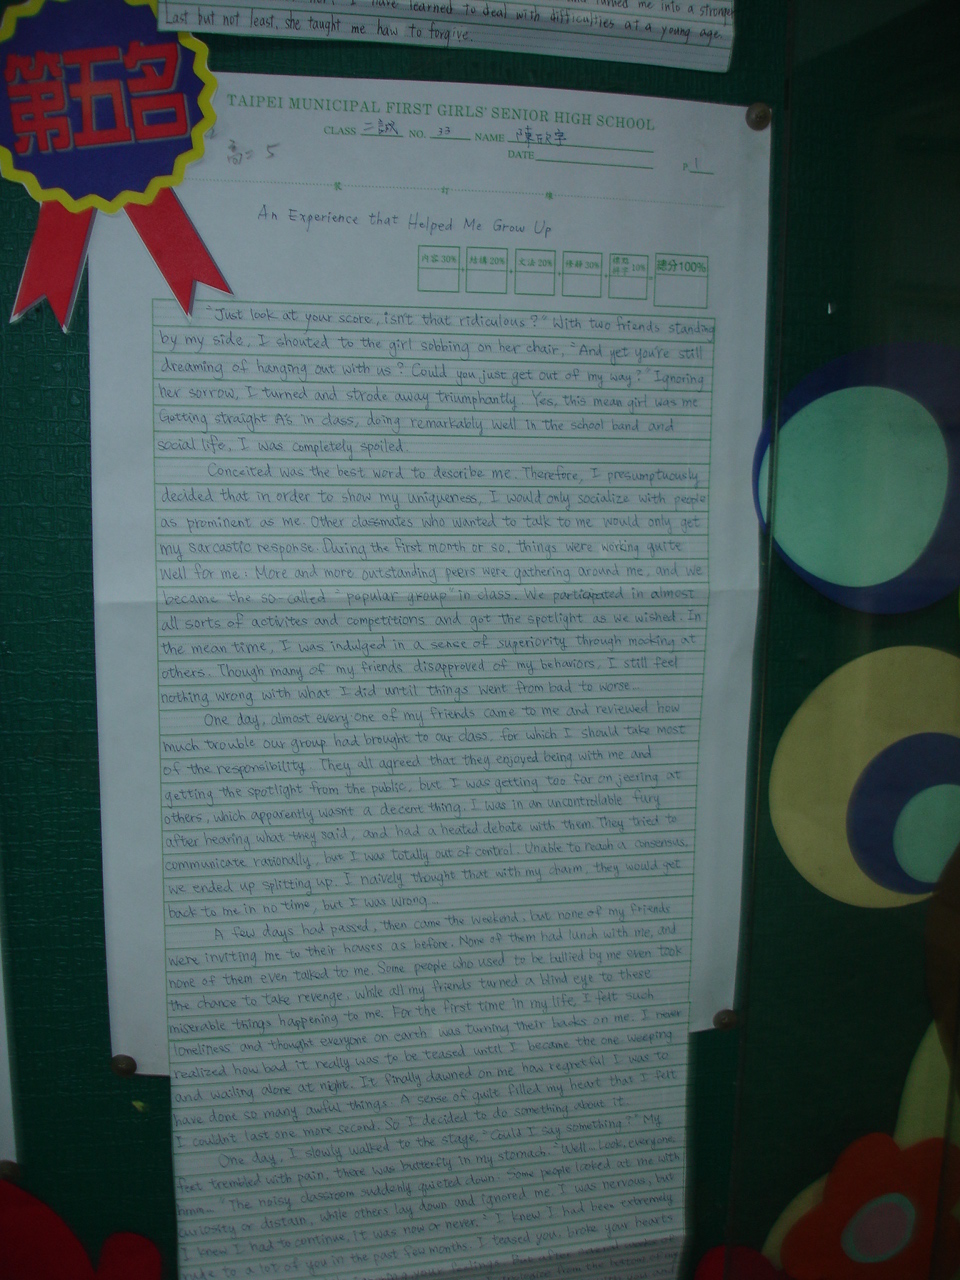 I have learned to deal with difficulties at a young age.
Last but not least, she taught me haw to forgive.
第五名
TAIPEI MUNICIPAL FIRST GIRLS' SENIOR HIGH SCHOOL
CLASS 二誠 NO. 33 NAME 陳
DATE
P. 1
= 5
An Experience that Helped Me Grow Up
內容30% 結構20% 文法20% 修辭20% 10% 總分100%
"Just look at your score, isn't that ridiculous?" With two friends standing
by my side, I shouted to the girl sobbing on her chair, "And yet you're still
dreaming of hanging out with us? Could you just get out of my way?" Ignoring
her sorrow, I turned and strode away triumphantly. Yes, this mean girl was me.
Gotting straight A's in class, doing remarkably well in the school band and
social life, I was completely spoiled.
Conceited was the best word to describe me. Therefore, I presumptuously
decided that in order to show my uniqueness, I would only socialize with people
as prominent as me. Other classmates who wanted to talk to me would only get
my sarcastic response. During the first month or so, things were working quite
well for me: More and more outstanding peers were gathering around me, and we
became the so-called "popular group" in class. We participated in almost
all sorts of activites and competitions and got the spotlight as we wished. In
the mean time, I was indulged in a sense of superiority through mocking at
others. Though many of my friends disapproved of my behaviors, I still feel
nothing wrong with what I did until things went from bad to worse...
One day, almost every one of my friends came to me and reviewed how
much trouble our group had brought to our class, for which I should take most
of the responsibility. They all agreed that they enjoyed being with me and
getting the spotlight from the public, but I was getting too far on jeering at
others, which apparently wasn't a decent thing. I was in an uncontrollable fury
after hearing what they said, and had a heated debate with them. They tried to
communicate rationally, but I was totally out of control. Unable to reach a consensus,
we ended up splitting up. I naively thought that with my charm, they would get
back to me in no time, but I was wrong...
A few days had passed, then came the weekend, but none of my friends
were inviting me to their houses as before. None of them had lunch with me, and
none of them even talked to me. Some people who used to be bullied by me even took
the chance to take revenge, while all my friends turned a blind eye to these
miserable things happening to me. For the first time in my life, I felt such
loneliness and thought everyone on earth was turning their backs on me. I never
realized how bad it really was to be teased until I became the one weeping
and wailing alone at night. It finally dawned on me how regretful I was to
have done so many awful things. A sense of guilt filled my heart that I felt
I couldn't last one more second. So I decided to do something about it.
One day, I slowly walked to the stage. "Could I say something?" My
feet trembled with pain, there was butterfly in my stomach. "Well.. Look, everyone
hmm..." The noisy classroom suddenly quieted down. Some people looked at me with
curiosity or distain, while others lay down and ignored me. I was nervous, but
I knew I had to continue. It was now or never. "I knew I had been extremely
rude to a lot of you in the past few months. I teased you, broke your hearts
your feelings.